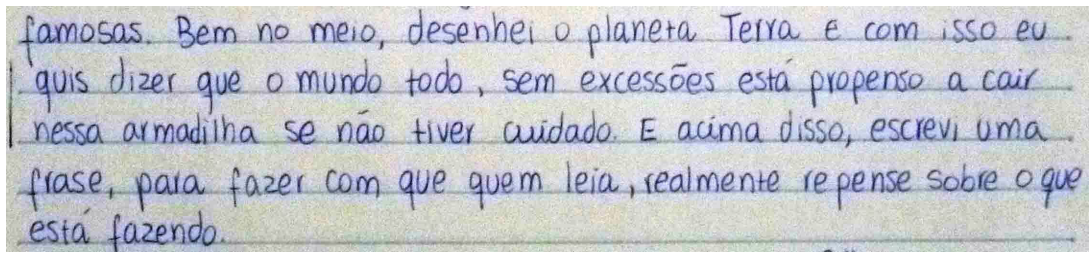 famosas. Bem no meio, desenhei o planeta Terra e com isso eu
quis dizer que o mundo todo, sem excessões está propenso a cair
nessa armadilha se não tiver cuidado. E acima disso, escrevi uma
frase, para fazer com que quem leia, realmente repense sobre o que
está fazendo.